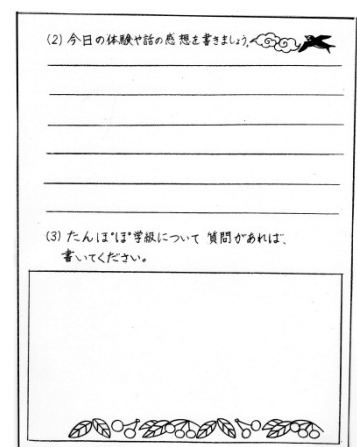 (2) 今日の体験や話の感想を書きましょう。
(3) たんぽぽ学級について 質問があれば、
書いてください。